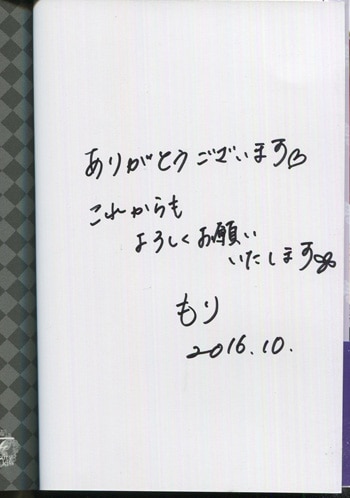 ありがとうございます♡
これからも
よろしくお願い
いたします
もり
2016.10.